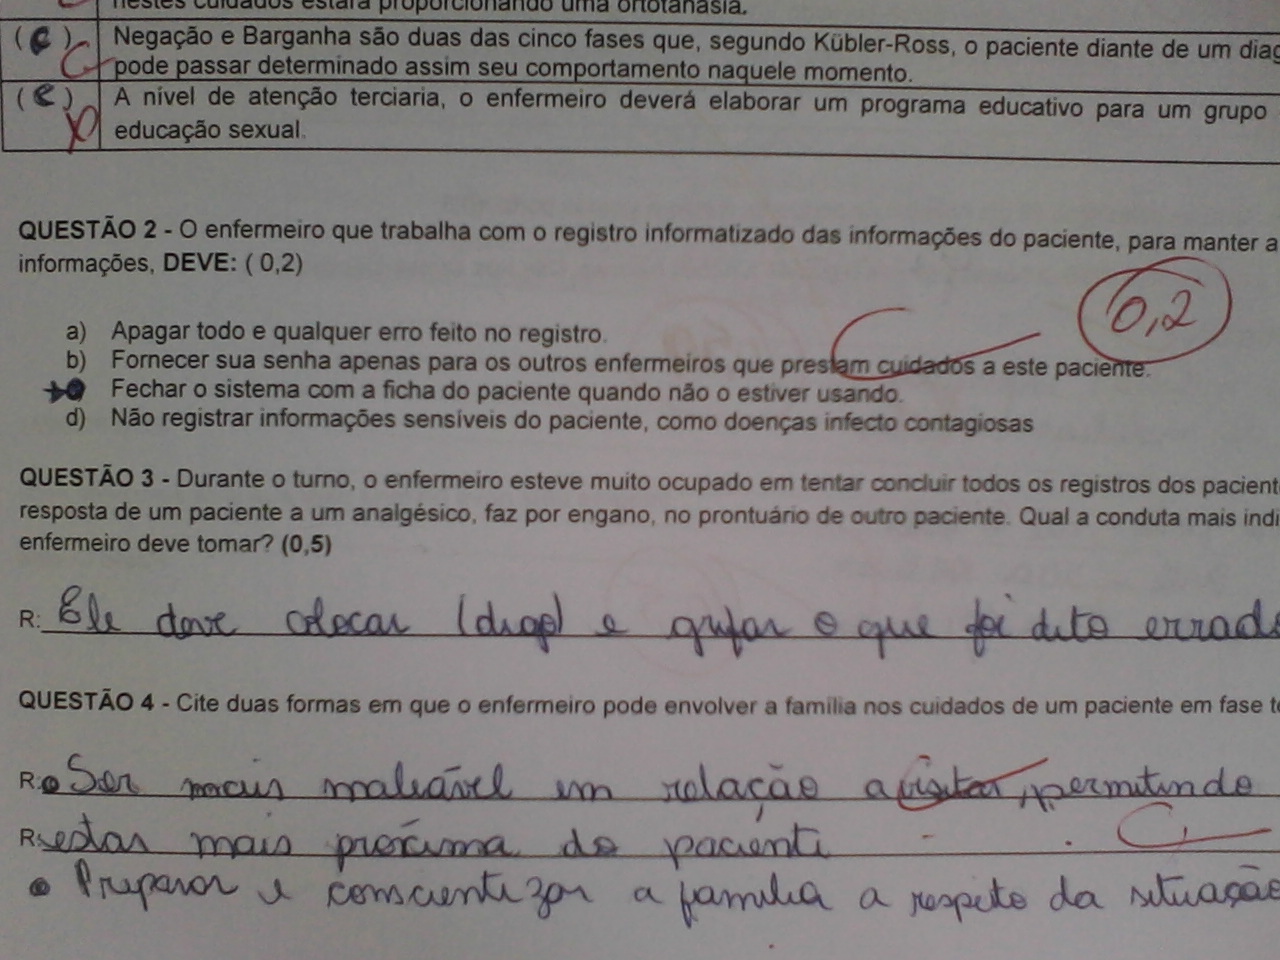 nestes cuidados estará proporcionando uma ortotanásia.
(C) Negação e Barganha são duas das cinco fases que, segundo Kübler-Ross, o paciente diante de um diag
C pode passar determinado assim seu comportamento naquele momento.
(C) A nível de atenção terciaria, o enfermeiro deverá elaborar um programa educativo para um grupo
educação sexual.
QUESTÃO 2 - O enfermeiro que trabalha com o registro informatizado das informações do paciente, para manter a
informações, DEVE: ( 0,2)
0,2
a) Apagar todo e qualquer erro feito no registro.
b) Fornecer sua senha apenas para os outros enfermeiros que prestam cuidados a este paciente.
Fechar o sistema com a ficha do paciente quando não o estiver usando.
d) Não registrar informações sensíveis do paciente, como doenças infecto contagiosas
QUESTÃO 3 - Durante o turno, o enfermeiro esteve muito ocupado em tentar concluir todos os registros dos pacient
resposta de um paciente a um analgésico, faz por engano, no prontuário de outro paciente. Qual a conduta mais indi
enfermeiro deve tomar? (0,5)
R: Ele deve colocar (digo) e grifar o que foi dito errado
QUESTÃO 4 - Cite duas formas em que o enfermeiro pode envolver a família nos cuidados de um paciente em fase te
R: Ser mais maleável em relação a visitas, permitindo
R: estar mais próxima do paciente
Preparar e conscientizar a família a respeito da situação